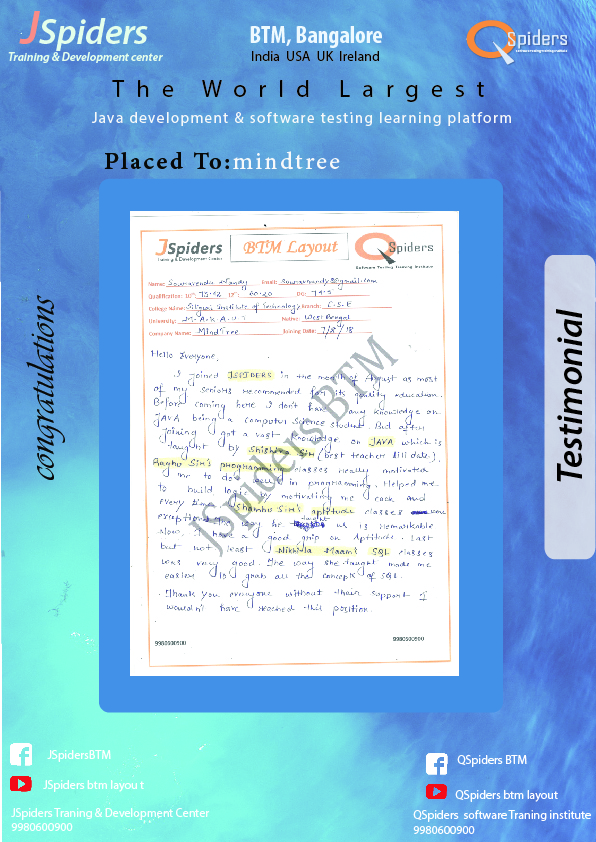 JSpiders
Training & Development center
BTM, Bangalore
India USA UK Ireland
QSpiders
The World Largest
Java development & software testing learning platform
Placed To:mindtree
congratulations
Testimonial
JSpiders
Training & Development Center
BTM Layout
QSpiders
Software Testing Training Institute
Name: Souravendu Nandy Email:
Qualification: 10th: 75.42 12th: 60.20 DG: 74.5
College Name: Siliguri Institute of Technology Branch: C.S.E
University: M.A.K.A.U.T Native: West Bengal
Company Name: MindTree Joining Date: 7/8/18
Hello Everyone,
I joined JSPIDERS in the month of August as most
of my seniors recommended for its quality education.
Before coming here I don't have any knowledge on
JAVA being a computer Science student. But after
joining got a vast knowledge on JAVA which is
taught by Shishira Sir (best teacher till date).
Ranhu Sir's programming classes really motivates
me to do well in programming. Helped me
to build logic by motivating me each and
every time. Shambu Sir's aptitude classes were
exceptional the way he taught us is remarkable
Now I have a good grip on Aptitude. Last
but not least Nikhila Maam's SQL classes
was very good. The way she taught made me
easier to grab all the concepts of SQL.
Thank you everyone without their support I
wouldn't have reached this position.
JSpiders BTM
9980600900
9980600900
JSpidersBTM
JSpiders btm layou t
JSpiders Traning & Development Center
9980600900
QSpiders BTM
QSpiders btm layout
QSpiders software Traning institute
9980600900